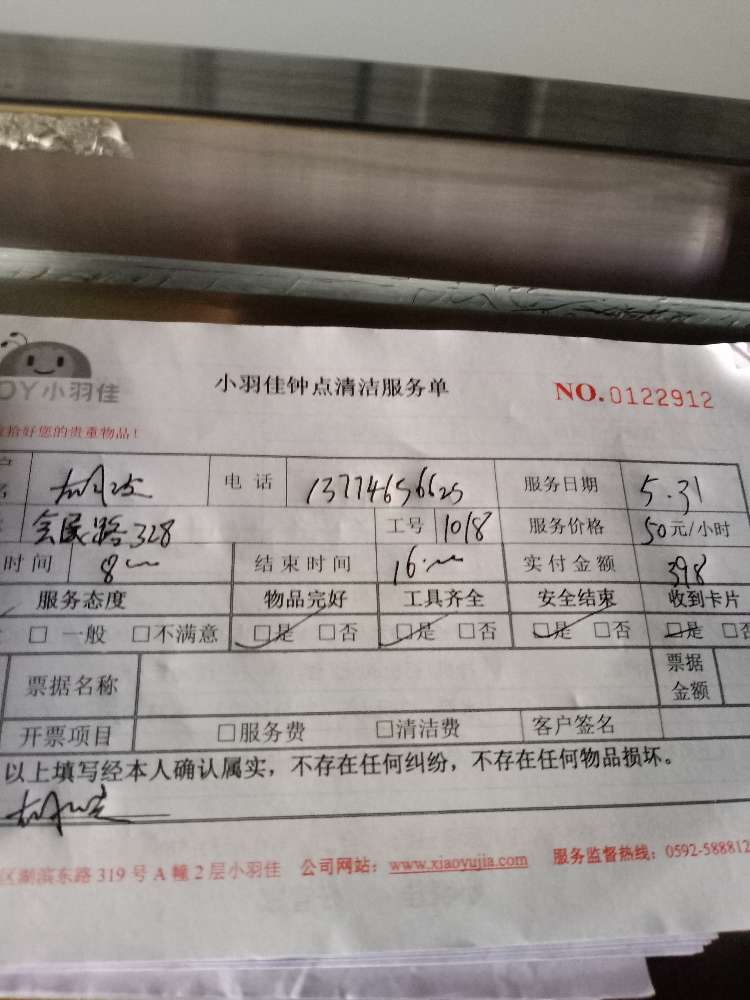 OY小羽佳
小羽佳钟点清洁服务单
NO.0122912
拾好您的贵重物品!
电 话 13774656625 服务日期 5.31
328 工号 1018 服务价格 50元/小时
时间 8 结束时间 16 实付金额 398
服务态度 物品完好 工具齐全 安全结束 收到卡片
□ 一般 □不满意 □是 □否 □是 □否 □是 □否 □是 □否
票据名称 票据金额
开票项目 □服务费 □清洁费 客户签名
以上填写经本人确认属实，不存在任何纠纷，不存在任何物品损坏。
区湖滨东路319号A幢2层小羽佳 公司网站：www.xiaoyujia.com 服务监督热线：0592-588812